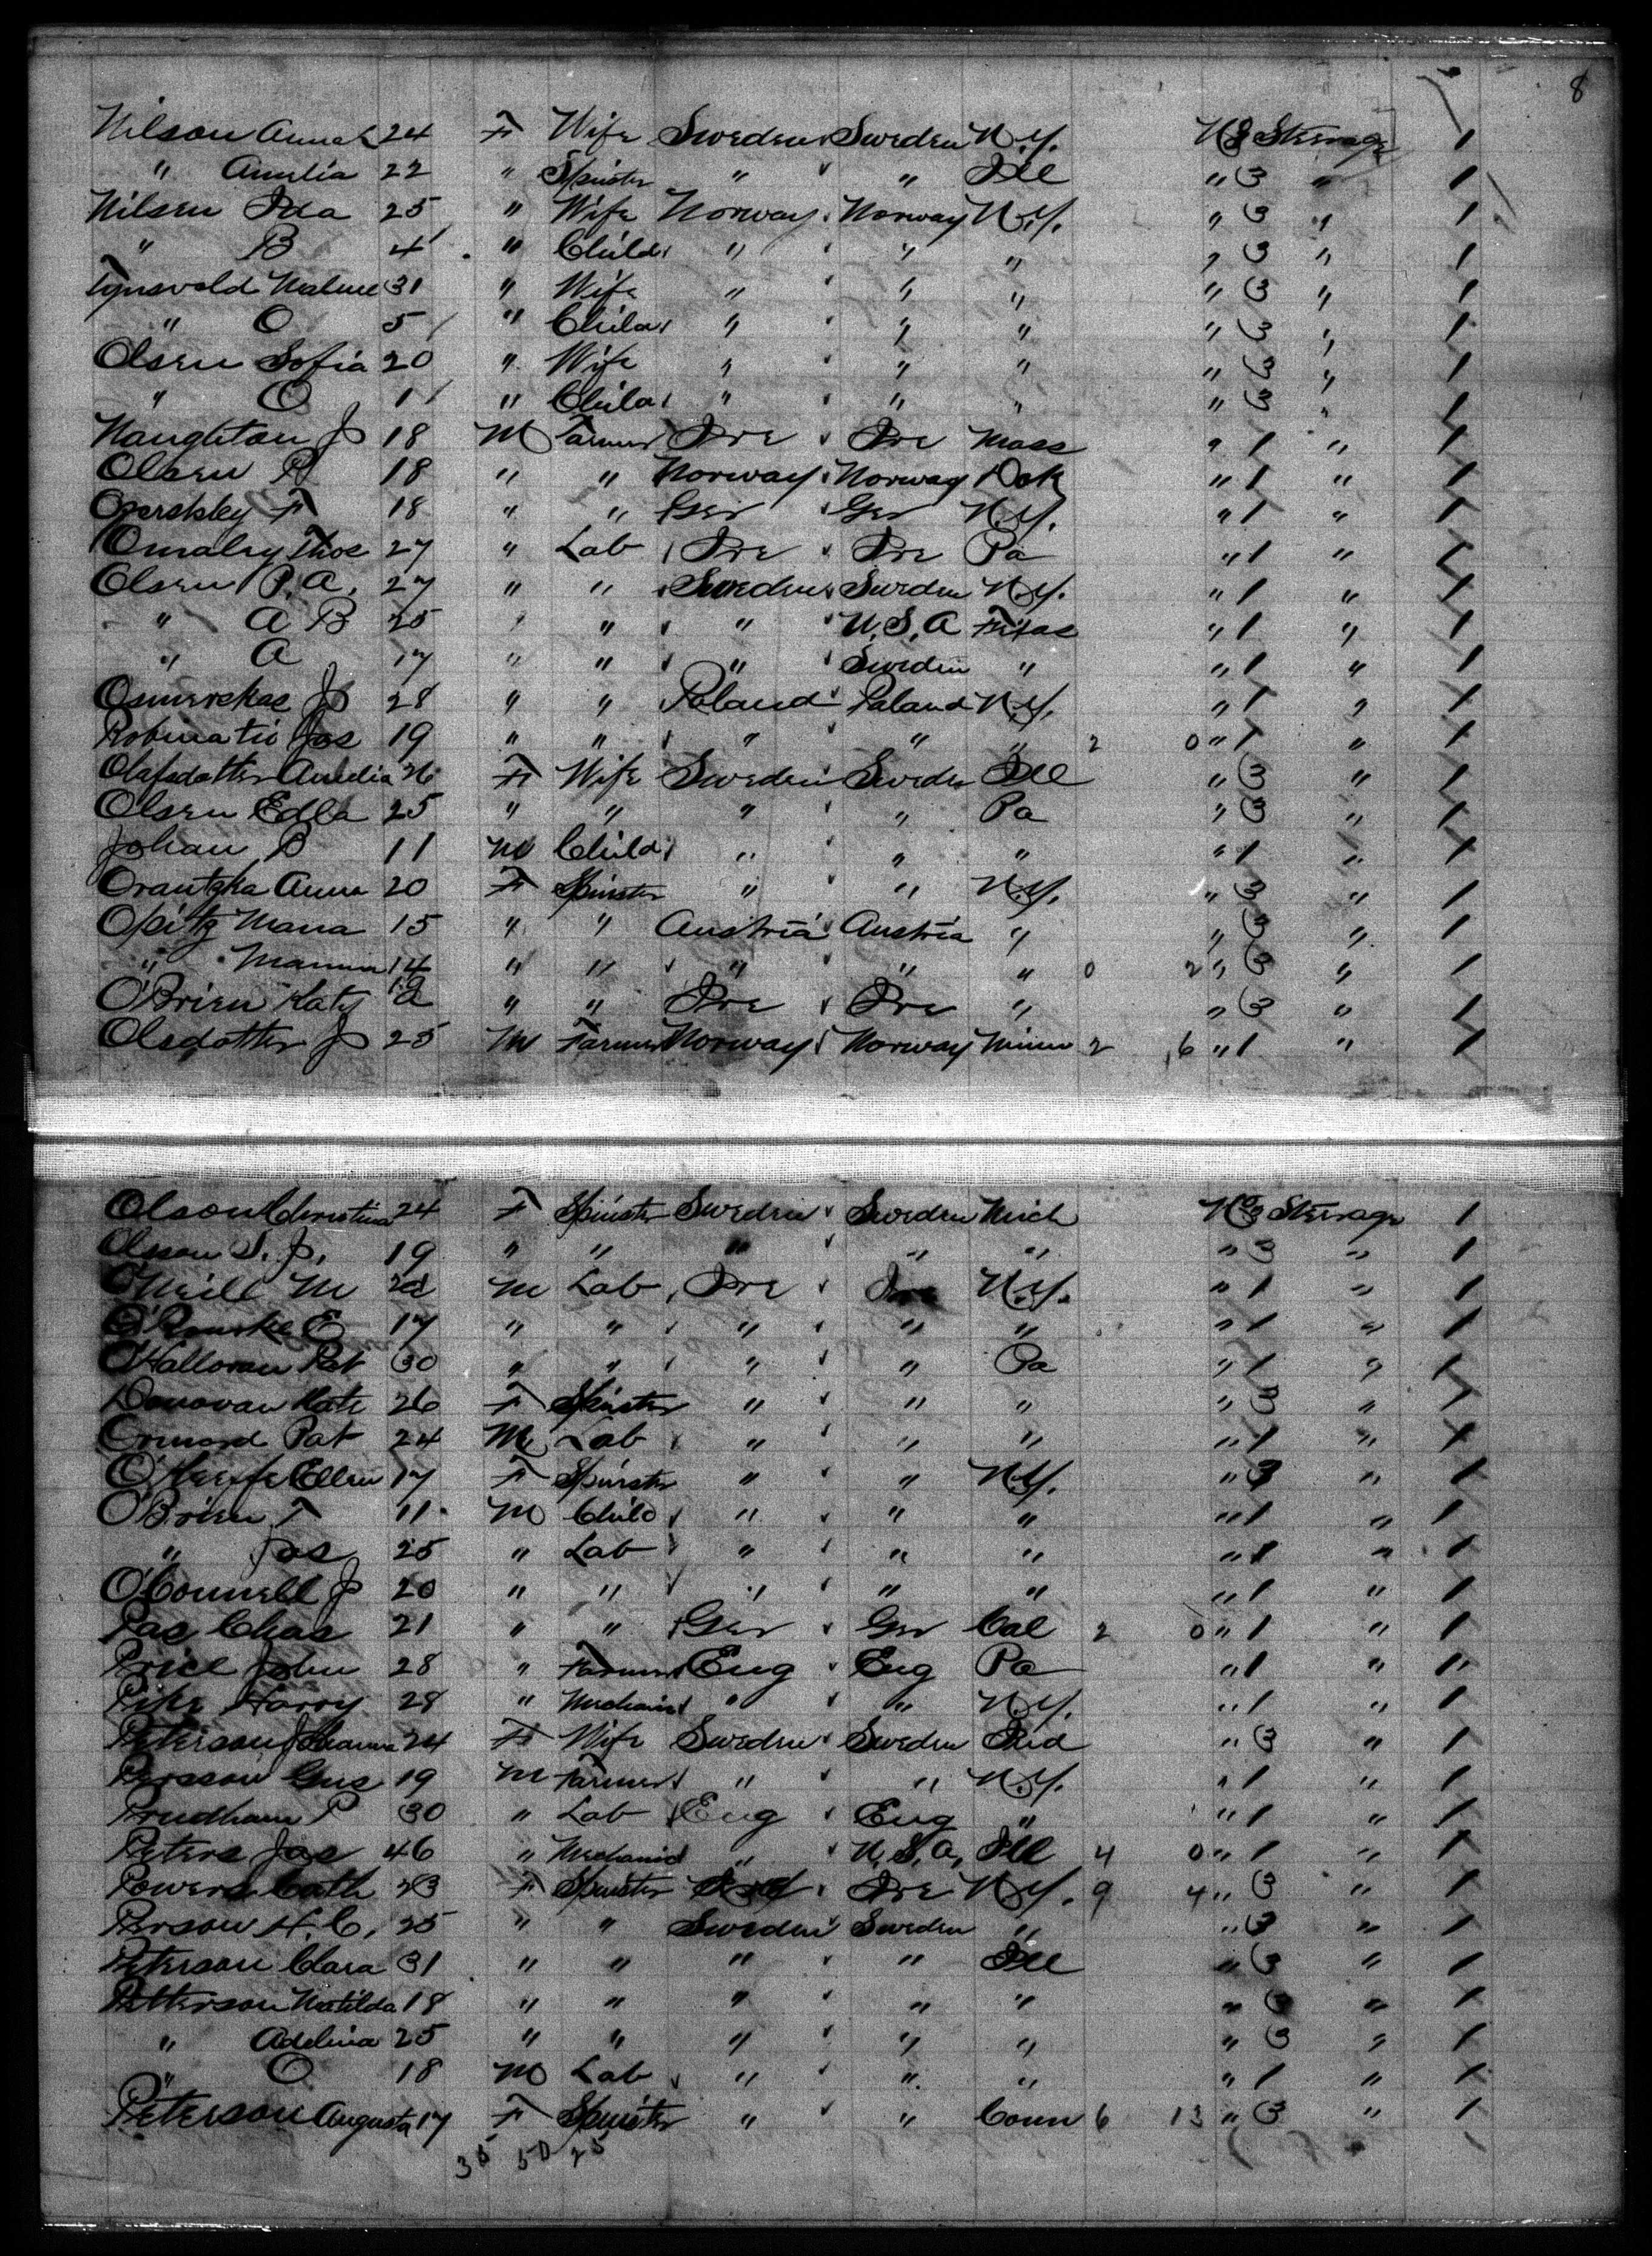 8
Nilson Anna L 24 F Wife Sweden Sweden N.Y. No 3 Steerage 1
" Amelia 22 " Spinster " " Ill " 3 " 1
Nilsen Ida 25 " Wife Norway Norway N.Y. " 3 " 1
" B 4 " Child " " " " 3 " 1
31 " Wife " " " " 3 " 1
" O 5 " Child " " " " 3 " 1
Olsen Sofia 20 " Wife " " " " 3 " 1
" O 1 " Child " " " " 3 " 1
Naughton J 18 M Farmer Ire Ire Mass " 1 " 1
Olsen P 18 " " Norway Norway Dak " 1 " 1
F 18 " " Ger Ger N.Y. " 1 " 1
Omalry Thos 27 " Lab Ire Ire Pa " 1 " 1
Olsen P.A. 27 " " Sweden Sweden N.Y. " 1 " 1
" A B 25 " " " U.S.A " 1 " 1
" A 17 " " " Sweden " " 1 " 1
J 28 " " Poland Poland N.Y. " 1 " 1
Jos 19 " " " " " 2 0 " 1 " 1
Olafsdotter Amelia 26 F Wife Sweden Sweden Ill " 3 " 1
Olsen Edla 25 " " " " Pa " 3 " 1
Johan B 11 M Child " " " " 1 " 1
Orantzka Anna 20 F Spinster " " N.Y. " 3 " 1
Opitz Maria 15 " " Austria Austria " " 3 " 1
" 14 " " " " " 0 2 " 3 " 1
O'Brien Katy " " Ire Ire " " 3 " 1
Olsdotter J 25 M Farmer Norway Norway Minn 2 6 " 1 " 1
Olson Christina 24 F Spinster Sweden Sweden Mich No 3 Steerage 1
Olsson S. J. 19 " " " " " " 3 " 1
O'Neill M M Lab Ire Ire N.Y. " 1 " 1
O'Rourke E 17 " " " " " " 1 " 1
O'Halloran Pat 30 " " " " Pa " 1 " 1
Donovan Kate 26 F Spinster " " " " 3 " 1
Ormond Pat 24 M Lab " " " " 1 " 1
O'Keeffe Ellen 17 F Spinster " " N.Y. " 3 " 1
O'Brien T 11 M Child " " " " 1 " 1
" Jas 25 " Lab " " " " 1 " 1
O'Connell J 20 " " " " " " 1 " 1
Pas Chas 21 " " Ger Ger Cal 2 0 " 1 " 1
Price John 28 " Farmer Eng Eng Pa " 1 " 1
Pike Harry 28 " Mechanic " " N.Y. " 1 " 1
Peterson Johanna 24 F Wife Sweden Sweden Ind " 3 " 1
Persson Gus 19 M Farmer " " N.Y. " 1 " 1
Prudham P 30 " Lab Eng Eng " " 1 " 1
Peters Jas 46 " Mechanic " U.S.A. Ill 4 0 " 1 " 1
Powers Cath 23 F Spinster Ire N.Y. 9 4 " 3 " 1
Person H. C. 25 " " Sweden Sweden " " 3 " 1
Peterson Clara 31 " " " " Ill " 3 " 1
Petterson Matilda 18 " " " " " " 3 " 1
" Adelina 25 " " " " " " 3 " 1
" O 18 M Lab " " " " 1 " 1
Peterson Augusta 17 F Spinster " " Conn 6 13 " 3 " 1
35 50 25